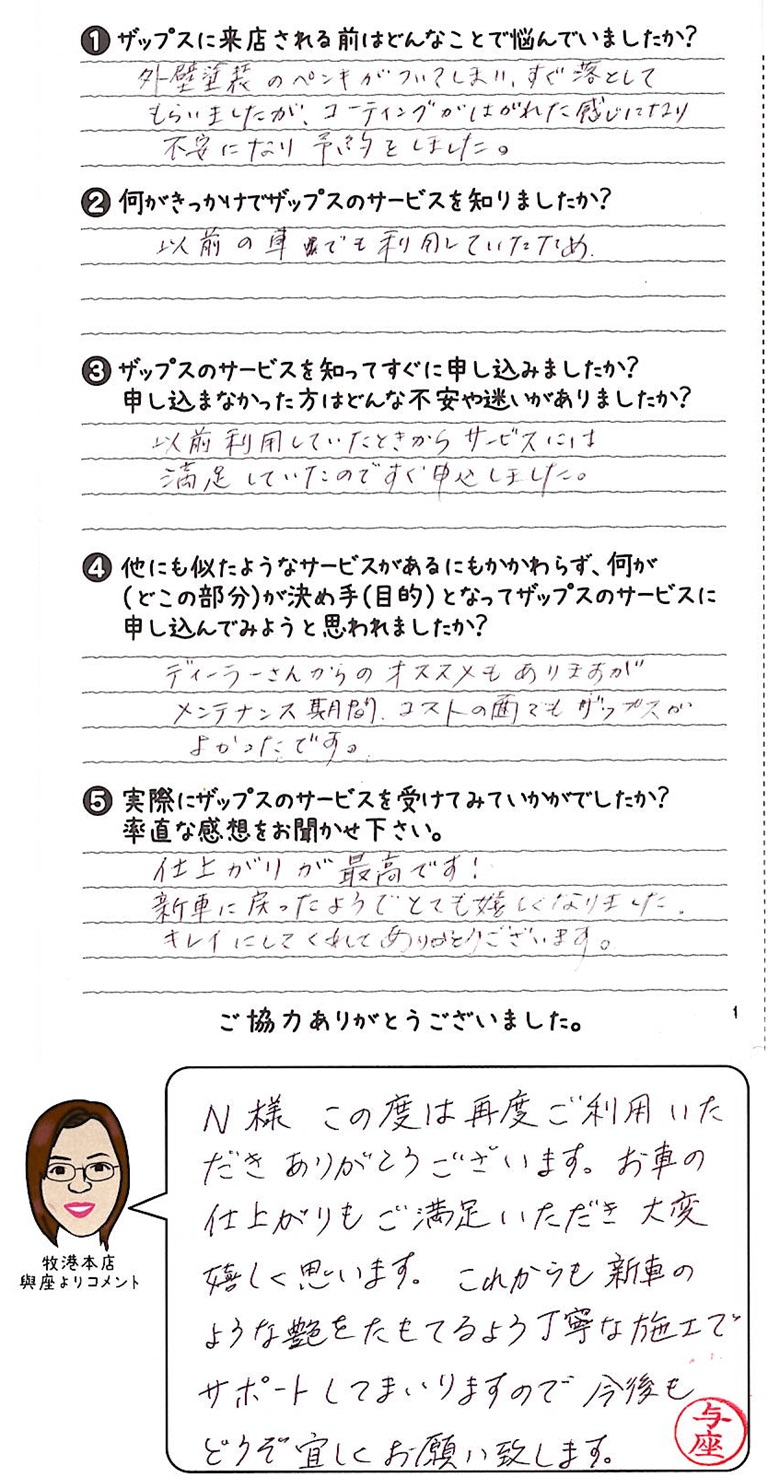 1 ザップスに来店される前はどんなことで悩んでいましたか?
外壁塗装のペンキがついてしまい、すぐ落として
もらいましたが、コーティングがはがれた感じになり
不安になり予約をしました。
2 何がきっかけでザップスのサービスを知りましたか?
以前の車でも利用していたため.
3 ザップスのサービスを知ってすぐに申し込みましたか?
申し込まなかった方はどんな不安や迷いがありましたか?
以前利用していたときからサービスには
満足していたのですぐ申込しました。
4 他にも似たようなサービスがあるにもかかわらず、何が
(どこの部分)が決め手(目的)となってザップスのサービスに
申し込んでみようと思われましたか?
ディーラーさんからのオススメもありますが
メンテナンス期間、コストの面でもザップスが
よかったです。
5 実際にザップスのサービスを受けてみていかがでしたか?
率直な感想をお聞かせ下さい。
仕上がりが最高です!
新車に戻ったようでとても嬉しくなりました.
キレイにしてくれてありがとうございます。
ご協力ありがとうございました。
1
N様 この度は再度ご利用いた
だきありがとうございます。お車の
仕上がりもご満足いただき大変
嬉しく思います。これからも新車の
ような艶をたもてるよう丁寧な施工で
サポートしてまいりますので今後も
どうぞ宜しくお願い致します。
与座
牧港本店
與座よりコメント